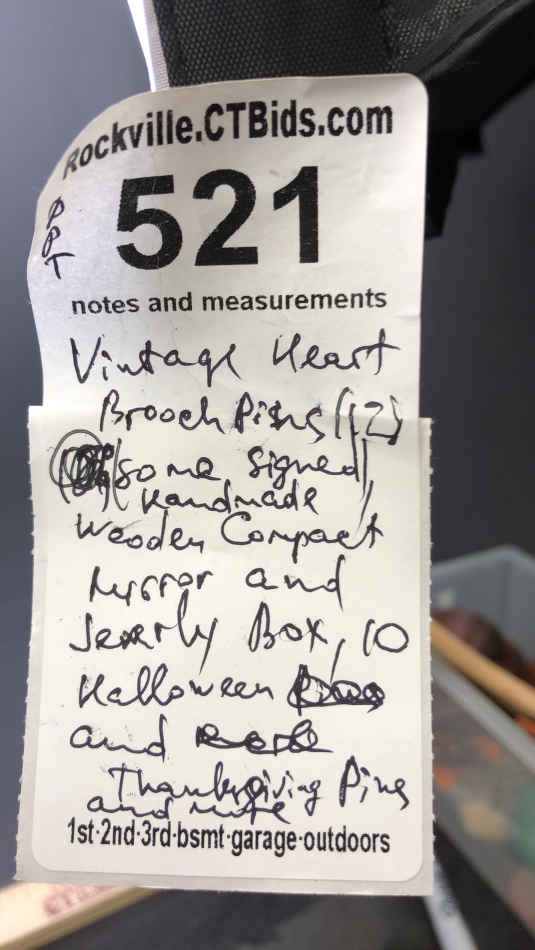 Rockville.CTBids.com
PPT
521
notes and measurements
Vintage Heart
Brooch Pisns (12)
(some signed)
Handmade,
Wooden Compact
Mirror and
Jewerly Box, 10
Halloween
and
Thanksgiving Pins
and more
1st·2nd·3rd·bsmt·garage·outdoors